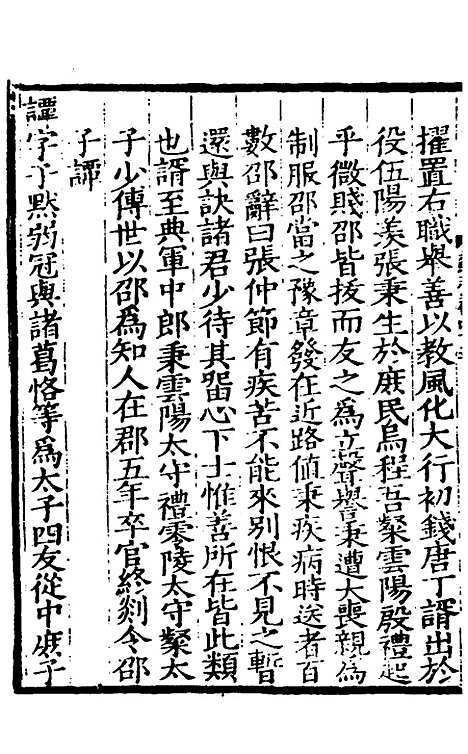 擢置右職舉善以教風化大行初錢唐丁諝出於
役伍陽羨張秉生於庶民烏程吾粲雲陽殷禮起
乎微賤邵皆拔而友之為立聲譽秉遭大喪親為
制服邵當之豫章發在近路值秉疾病時送者百
數邵辭曰張仲節有疾苦不能來別恨不見之暫
還與訣諸君少待其留心下士惟善所在皆此類
也諝至典軍中郎秉雲陽太守禮零陵太守粲太
子少傅世以邵為知人在郡五年卒官終剡令邵
子譚
譚字子默弱冠與諸葛恪等為太子四友從中庶子